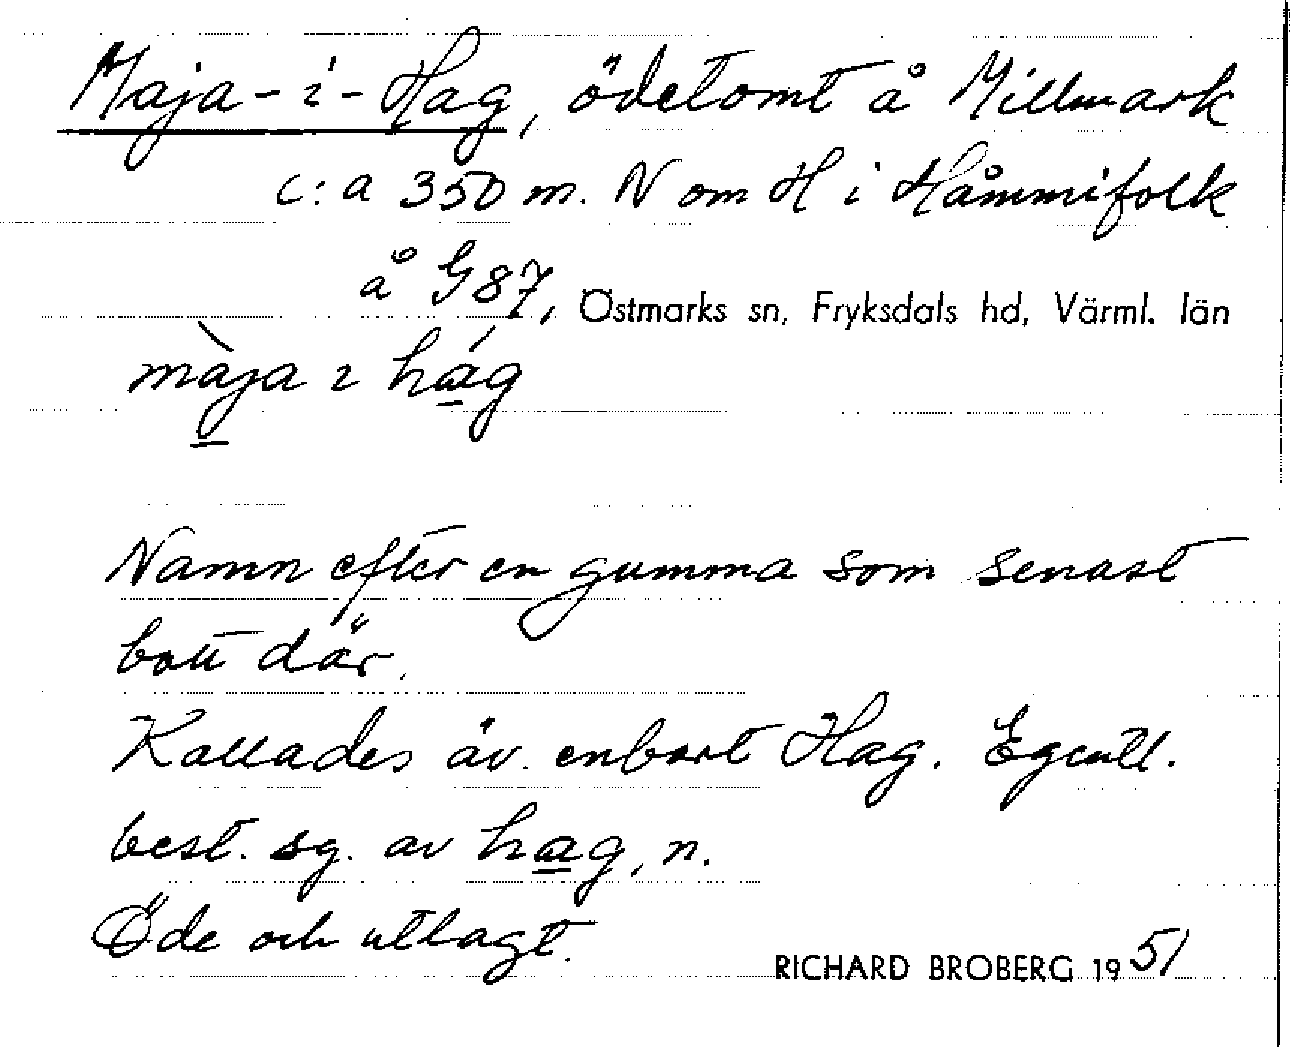 Maja-i-Hag, ödetomt å Millmark
c:a 350 m. N om H i Håmmifolk
å G87, Östmarks sn, Fryksdals hd, Värml. län
màja ɩ hág
Namn efter en gumma som senast
bott där.
Kallades äv. enbart Hag. Egentl.
best. sg. av hag, n.
Öde och utlagt.
RICHARD BROBERG 1951